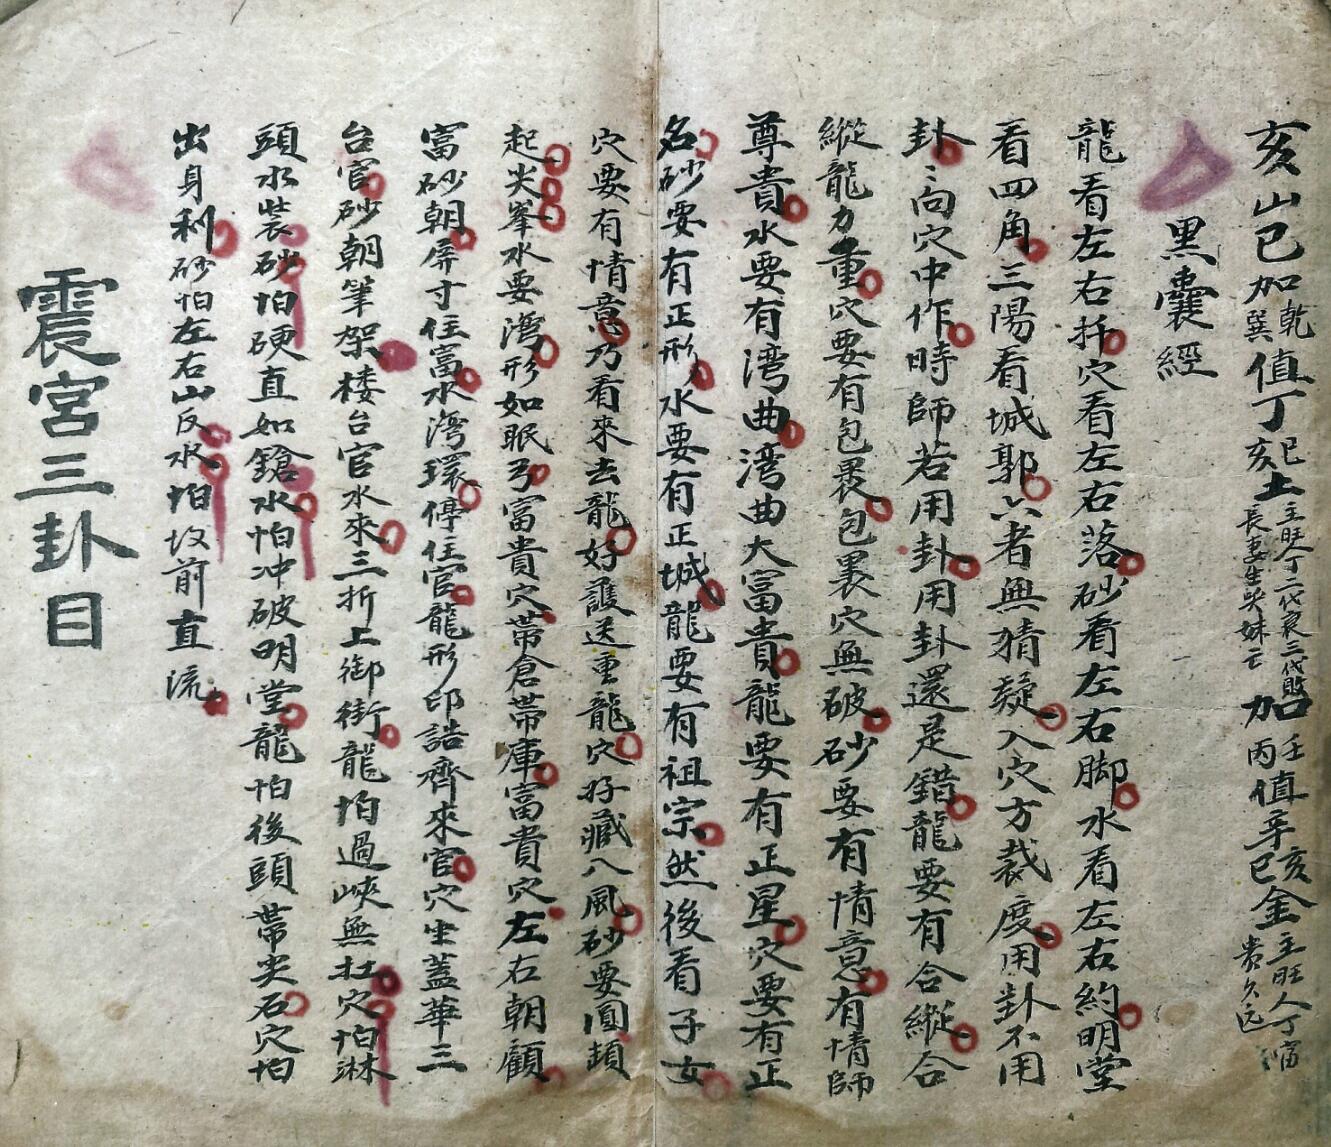 亥山巳加乾巽值丁巳亥土主旺人丁二代衰三代敗長妻生哭妹亡加壬丙值辛亥巳金主旺人丁富貴久远
黑囊經
龍看左右扦穴看左右落砂看左右脚水看左右約明堂
看四角三陽看城郭六者無猜疑入穴方裁度用卦不用
卦〻向穴中作時師若用卦用卦還是錯龍要有合縱合
縱龍力重穴要有包裹包裹穴無破砂要有情意有情師
尊貴水要有湾曲湾曲大富貴龍要有正星穴要有正
名砂要有正形水要有正城龍要有祖宗然後看子女
穴要有情意乃看來去龍好護送重龍穴好藏八風砂要圓頭
起尖峯水要湾形如眠弓富貴穴帶倉帶庫富貴穴左右朝顧
富砂朝屏寸住富水湾環停住官龍形印誥齊來官穴坐蓋華三
台官砂朝筆架楼台官水來三折上御街龍怕過峽無扛穴怕淋
頭水裝砂怕硬直如鎗水怕冲破明堂龍怕後頭帶尖石穴怕
出身利砂怕左右山反水怕坟前直流
震宮三卦目